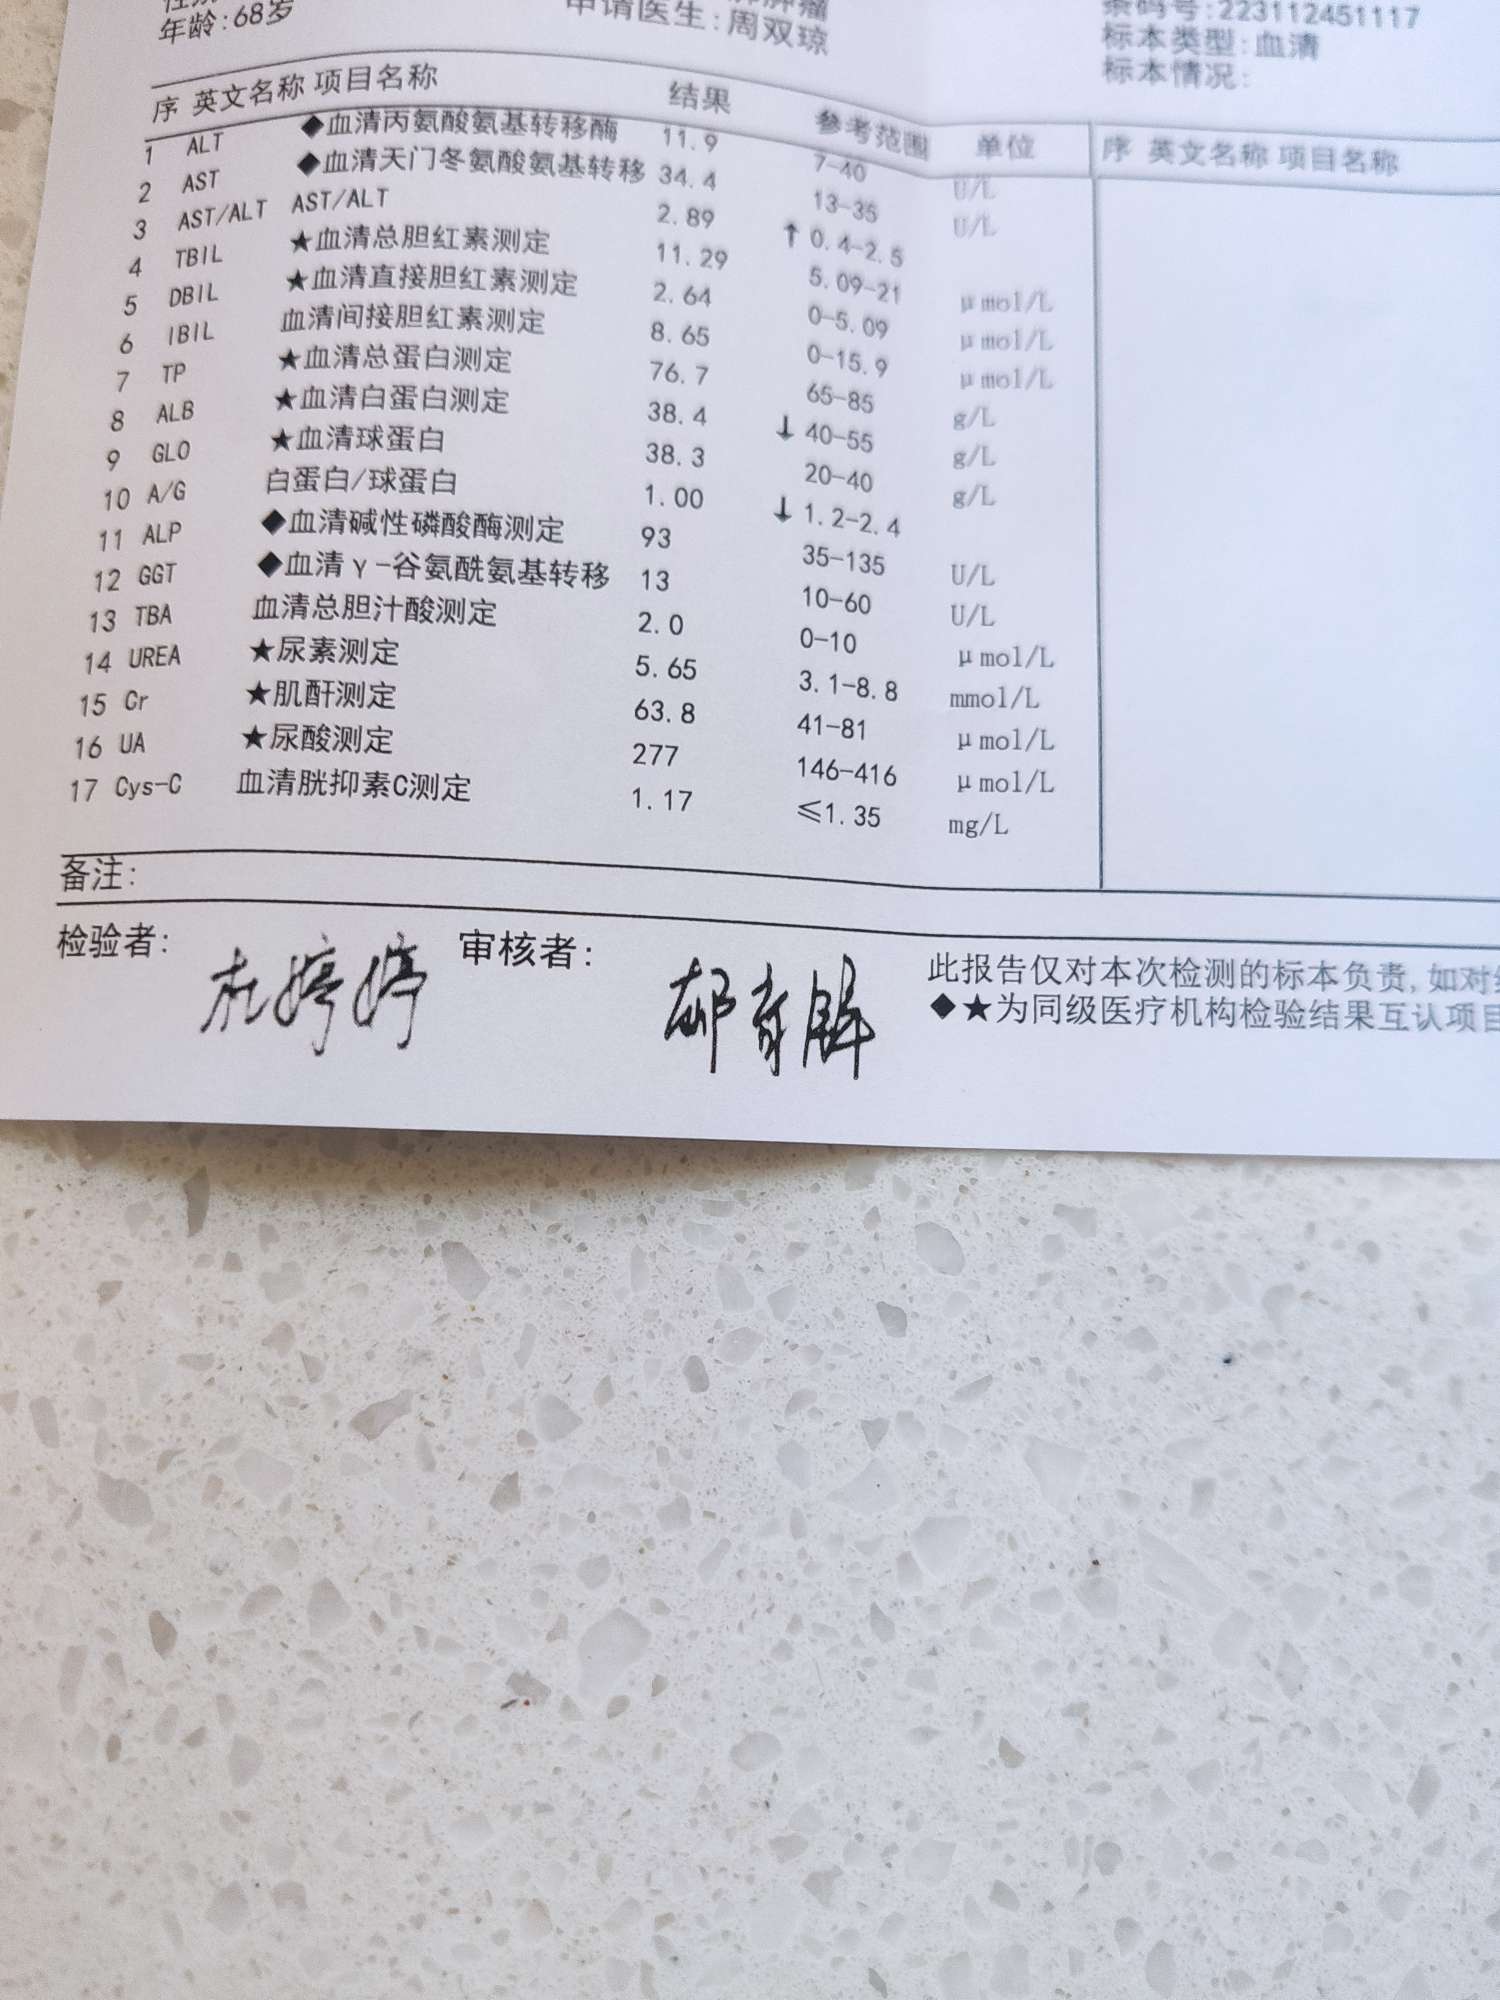 年龄:68岁
肿瘤
申请医生:周双琼
条码号:223112451117
标本类型:血清
标本情况:
序 英文名称 项目名称 结果 参考范围 单位 序 英文名称 项目名称
1 ALT ◆血清丙氨酸氨基转移酶 11.9 7-40 U/L
2 AST ◆血清天门冬氨酸氨基转移 34.4 13-35 U/L
3 AST/ALT AST/ALT 2.89 ↑ 0.4-2.5
4 TBIL ★血清总胆红素测定 11.29 5.09-21 μmol/L
5 DBIL ★血清直接胆红素测定 2.64 0-5.09 μmol/L
6 IBIL 血清间接胆红素测定 8.65 0-15.9 μmol/L
7 TP ★血清总蛋白测定 76.7 65-85 g/L
8 ALB ★血清白蛋白测定 38.4 ↓ 40-55 g/L
9 GLO ★血清球蛋白 38.3 20-40 g/L
10 A/G 白蛋白/球蛋白 1.00 ↓ 1.2-2.4
11 ALP ◆血清碱性磷酸酶测定 93 35-135 U/L
12 GGT ◆血清γ-谷氨酰氨基转移 13 10-60 U/L
13 TBA 血清总胆汁酸测定 2.0 0-10 μmol/L
14 UREA ★尿素测定 5.65 3.1-8.8 mmol/L
15 Cr ★肌酐测定 63.8 41-81 μmol/L
16 UA ★尿酸测定 277 146-416 μmol/L
17 Cys-C 血清胱抑素C测定 1.17 ≤1.35 mg/L
备注:
检验者: 杜婷婷 审核者:
此报告仅对本次检测的标本负责,如对
◆★为同级医疗机构检验结果互认项目